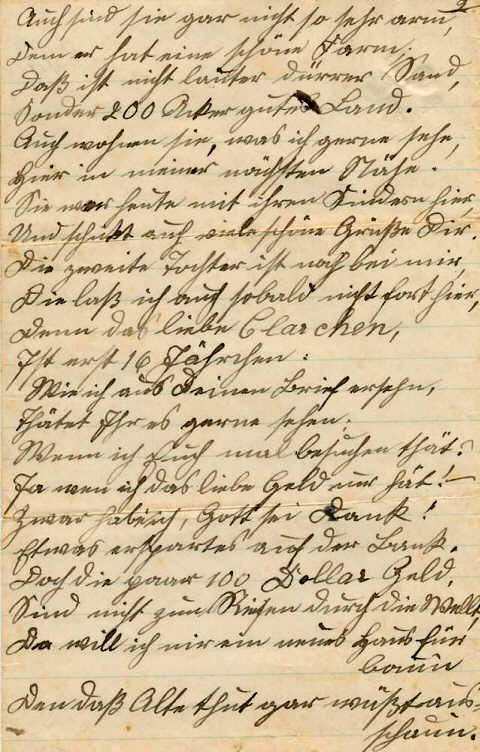 2
Auch sind sie gar nicht so sehr arm,
Denn er hat eine schöne Farm;
Daß ist nicht lauter dürrer Sand,
Sonder 200 Acker gutes Land.
Auch wohnen sie, was ich gerne sehe,
Hier in meiner nächsten Nähe.
Sie war heute mit ihren Kindern hier,
Und schickt auch viele schöne Grüße Dir.
Die zweite Tochter ist noch bei mir,
Die laß ich auch sobald nicht fort hier,
Denn das liebe Clarchen,
Ist erst 16 Jährchen.
Wie ich aus Deinen Brief ersehn,
Thätet Ihr es gerne sehen,
Wenn ich Euch mal besuchen thät.
Ja wen ich das liebe Geld nur hät!—
Zwar hab ich, Gott sei Dank!
Etwas erspartes auf der Bank.
Doch die paar 100 Dollar Geld,
Sind nicht zum Reisen durch die Wellt,
Da will ich mir ein neues Haus für
baun
Den daß Alte thut gar wüßt aus-
schaun.